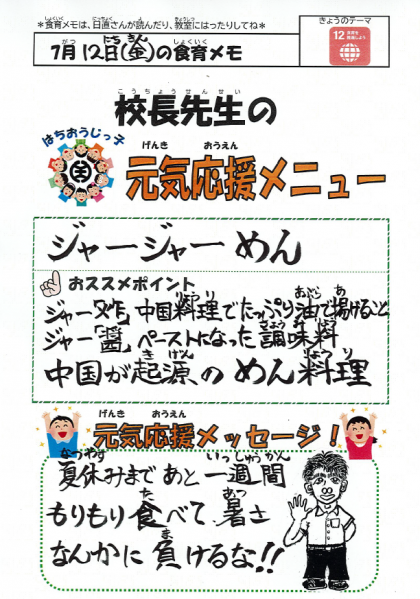 *食育メモは、日直さんが読んだり、教室にはったりしてね*
7月12日(金)の食育メモ
きょうのテーマ
12
校長先生の
はちおうじっ子
元気応援メニュー
ジャージャーめん
おススメポイント
ジャー「炸」中国料理でたっぷり油で揚げること
ジャー「醤」ペーストになった調味料
中国が起源のめん料理
元気応援メッセージ!
夏休みまであと一週間
もりもり食べて暑さ
なんかに負けるな!!